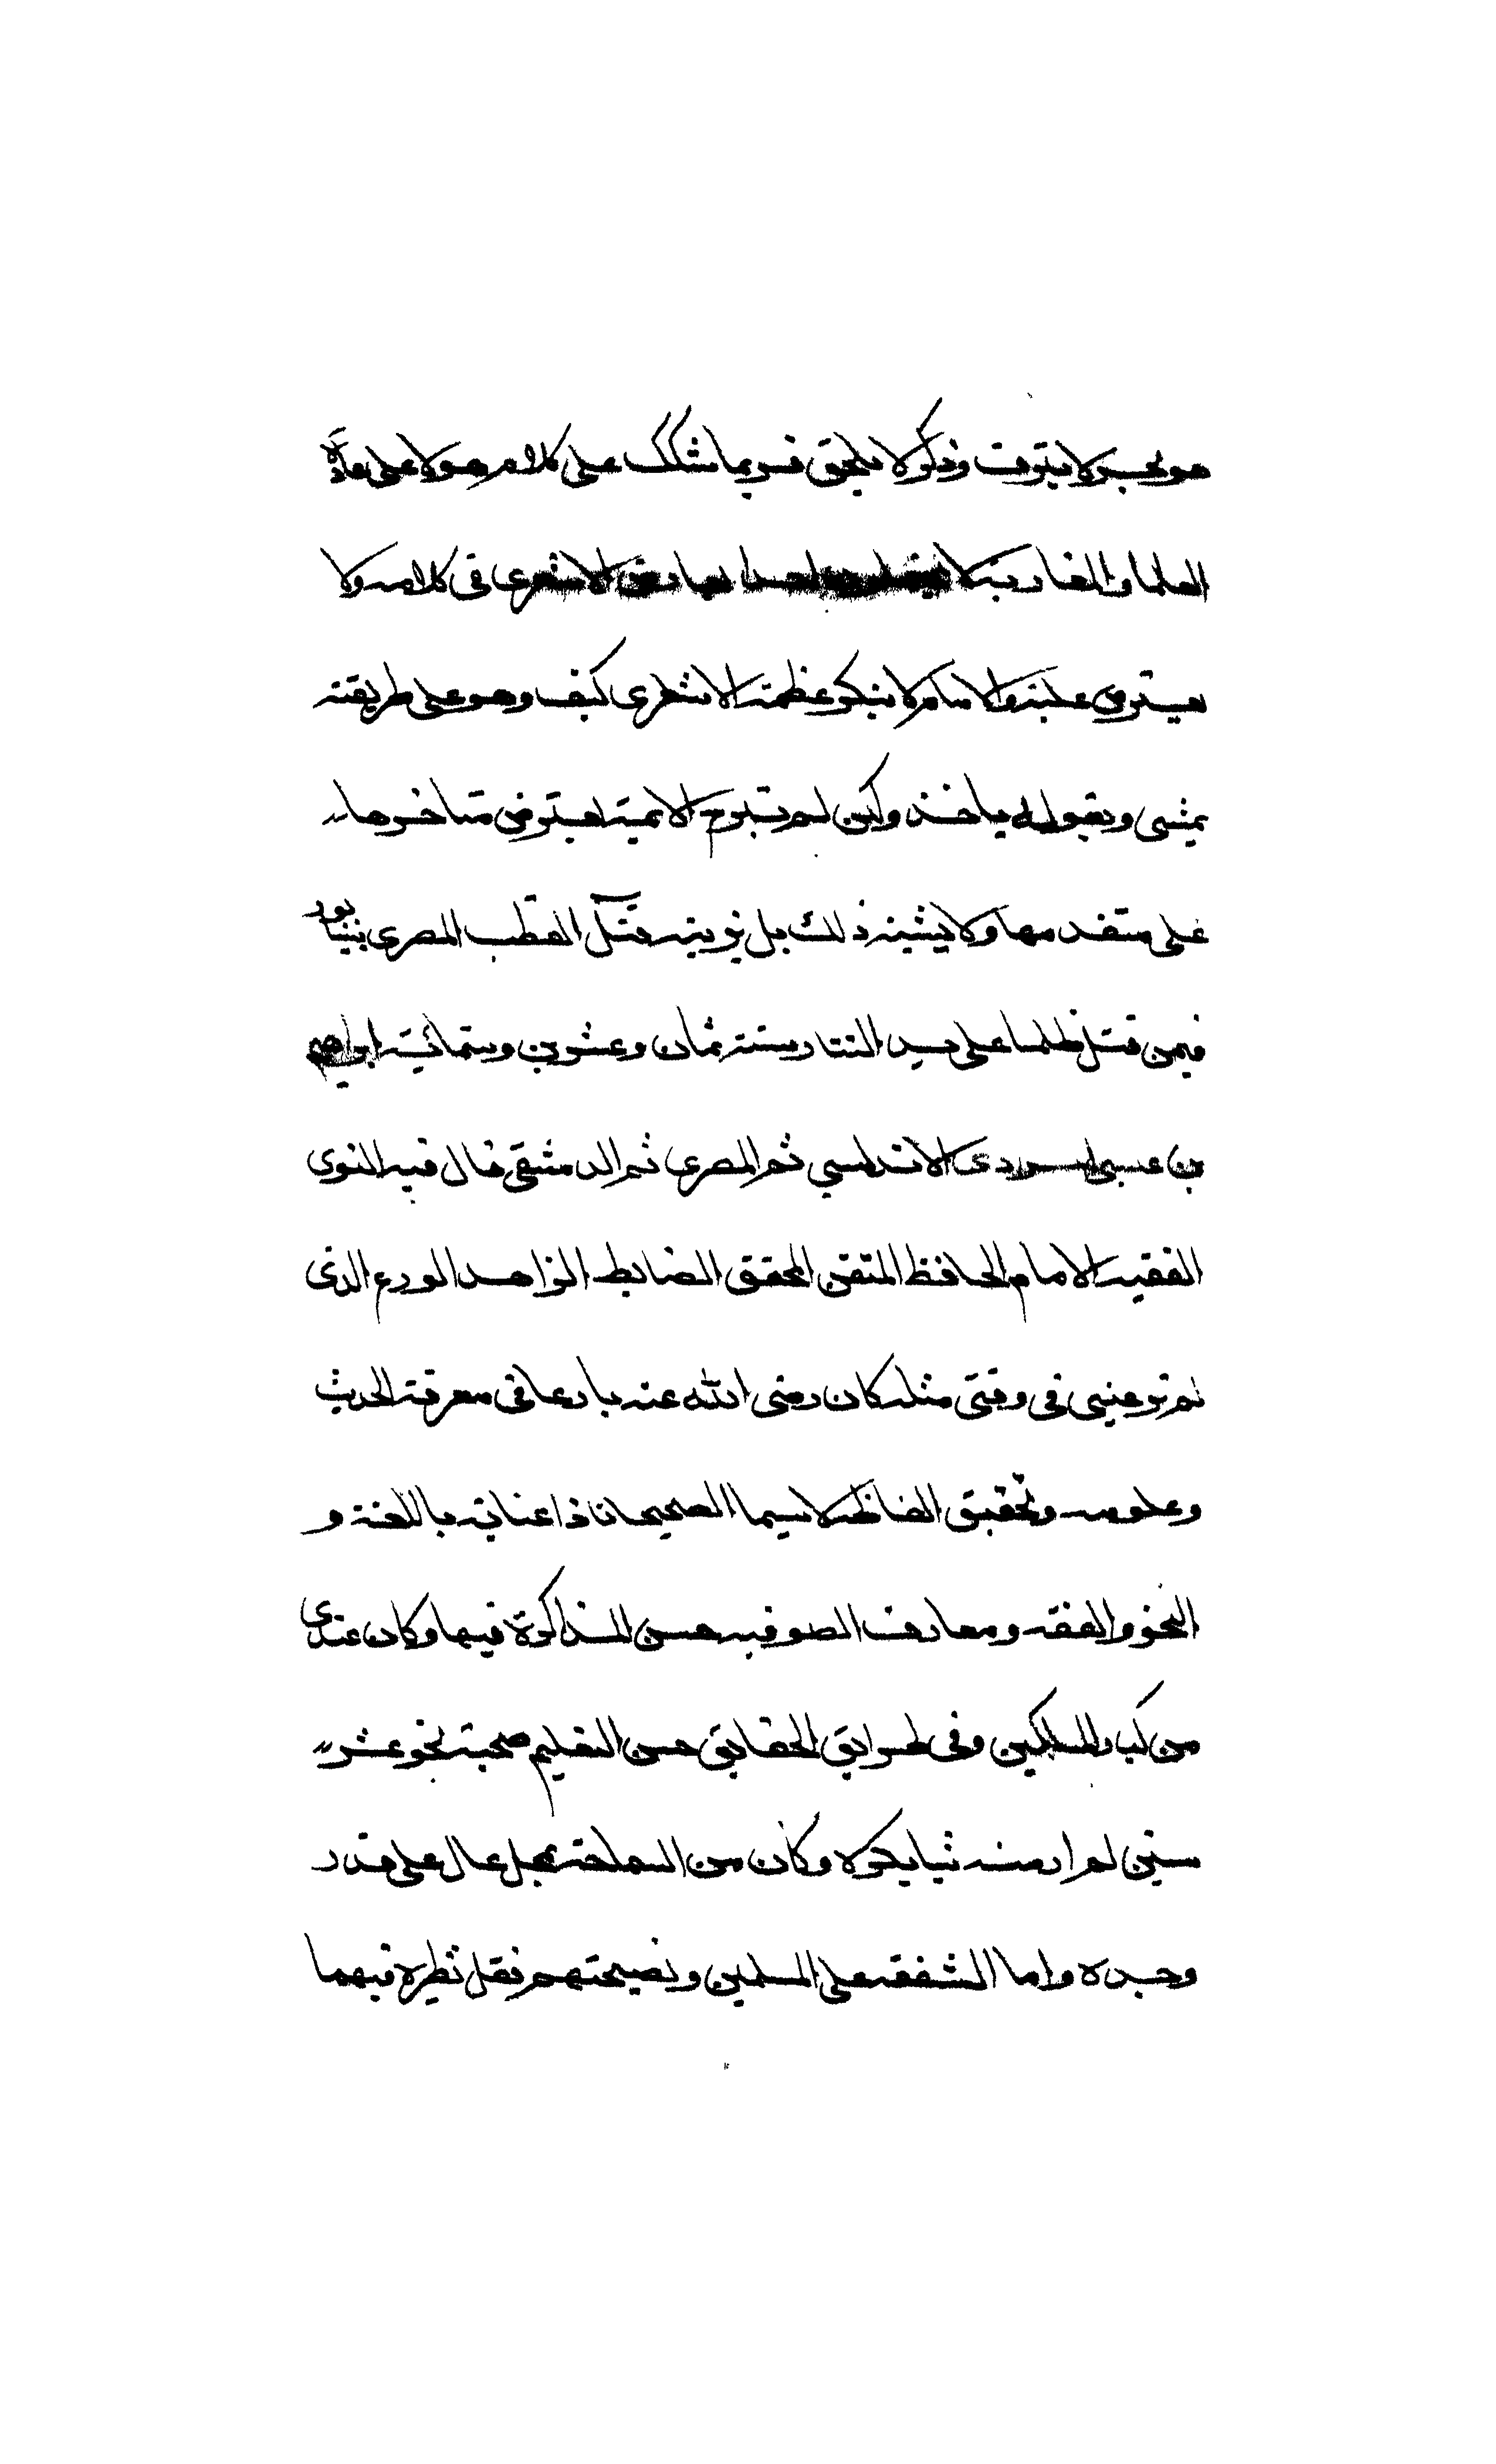 هو بحر لا ينزف وذكر لا يلحق فربما شكك على كلام هولا على عادة
العلما والمغاربة لا احدا يعارض الاشعري في كلامه ولا
يعترض عليه والامام لا ينكر عظمة الاشعري كيف وهو على طريقته
يمشي وبقوله ياخذ ولكن لم تبرح الايمة يعترض متاخرها
على متقدمها ولا يشينه ذلك بل يزينه قتل القطب المصري بنيسابور
فيمن قتل ظلما على يد التتار سنة ثمان وعشرين وستمائية ابراهيم
بن عيسى المرادي الاندلسي ثم المصري ثم الدمشقي قال فيه النووي
الفقيه الامام الحافظ المتقن المحقق الضابط الزاهد الورع الذي
لم تر عيني في وقتي مثله كان رضي الله عنه بارعا في معرفة الحديث
وعلومه وتحقيق الفاظه لاسيما الصحيحان ذا عناية باللغة و
النحو والفقه ومعارف الصوفيه حسن المذاكرة فيها وكان عندي
من كبار المسلكين وفي طرايق الحقايق حسن التعليم صحبته نحو عشر
سنين لم ار منه شيا يكره وكان من السماحة بمحل عال على قدر
وجده واما الشفقه على المسلمين ونصيحتهم فقل نظيره فيهما